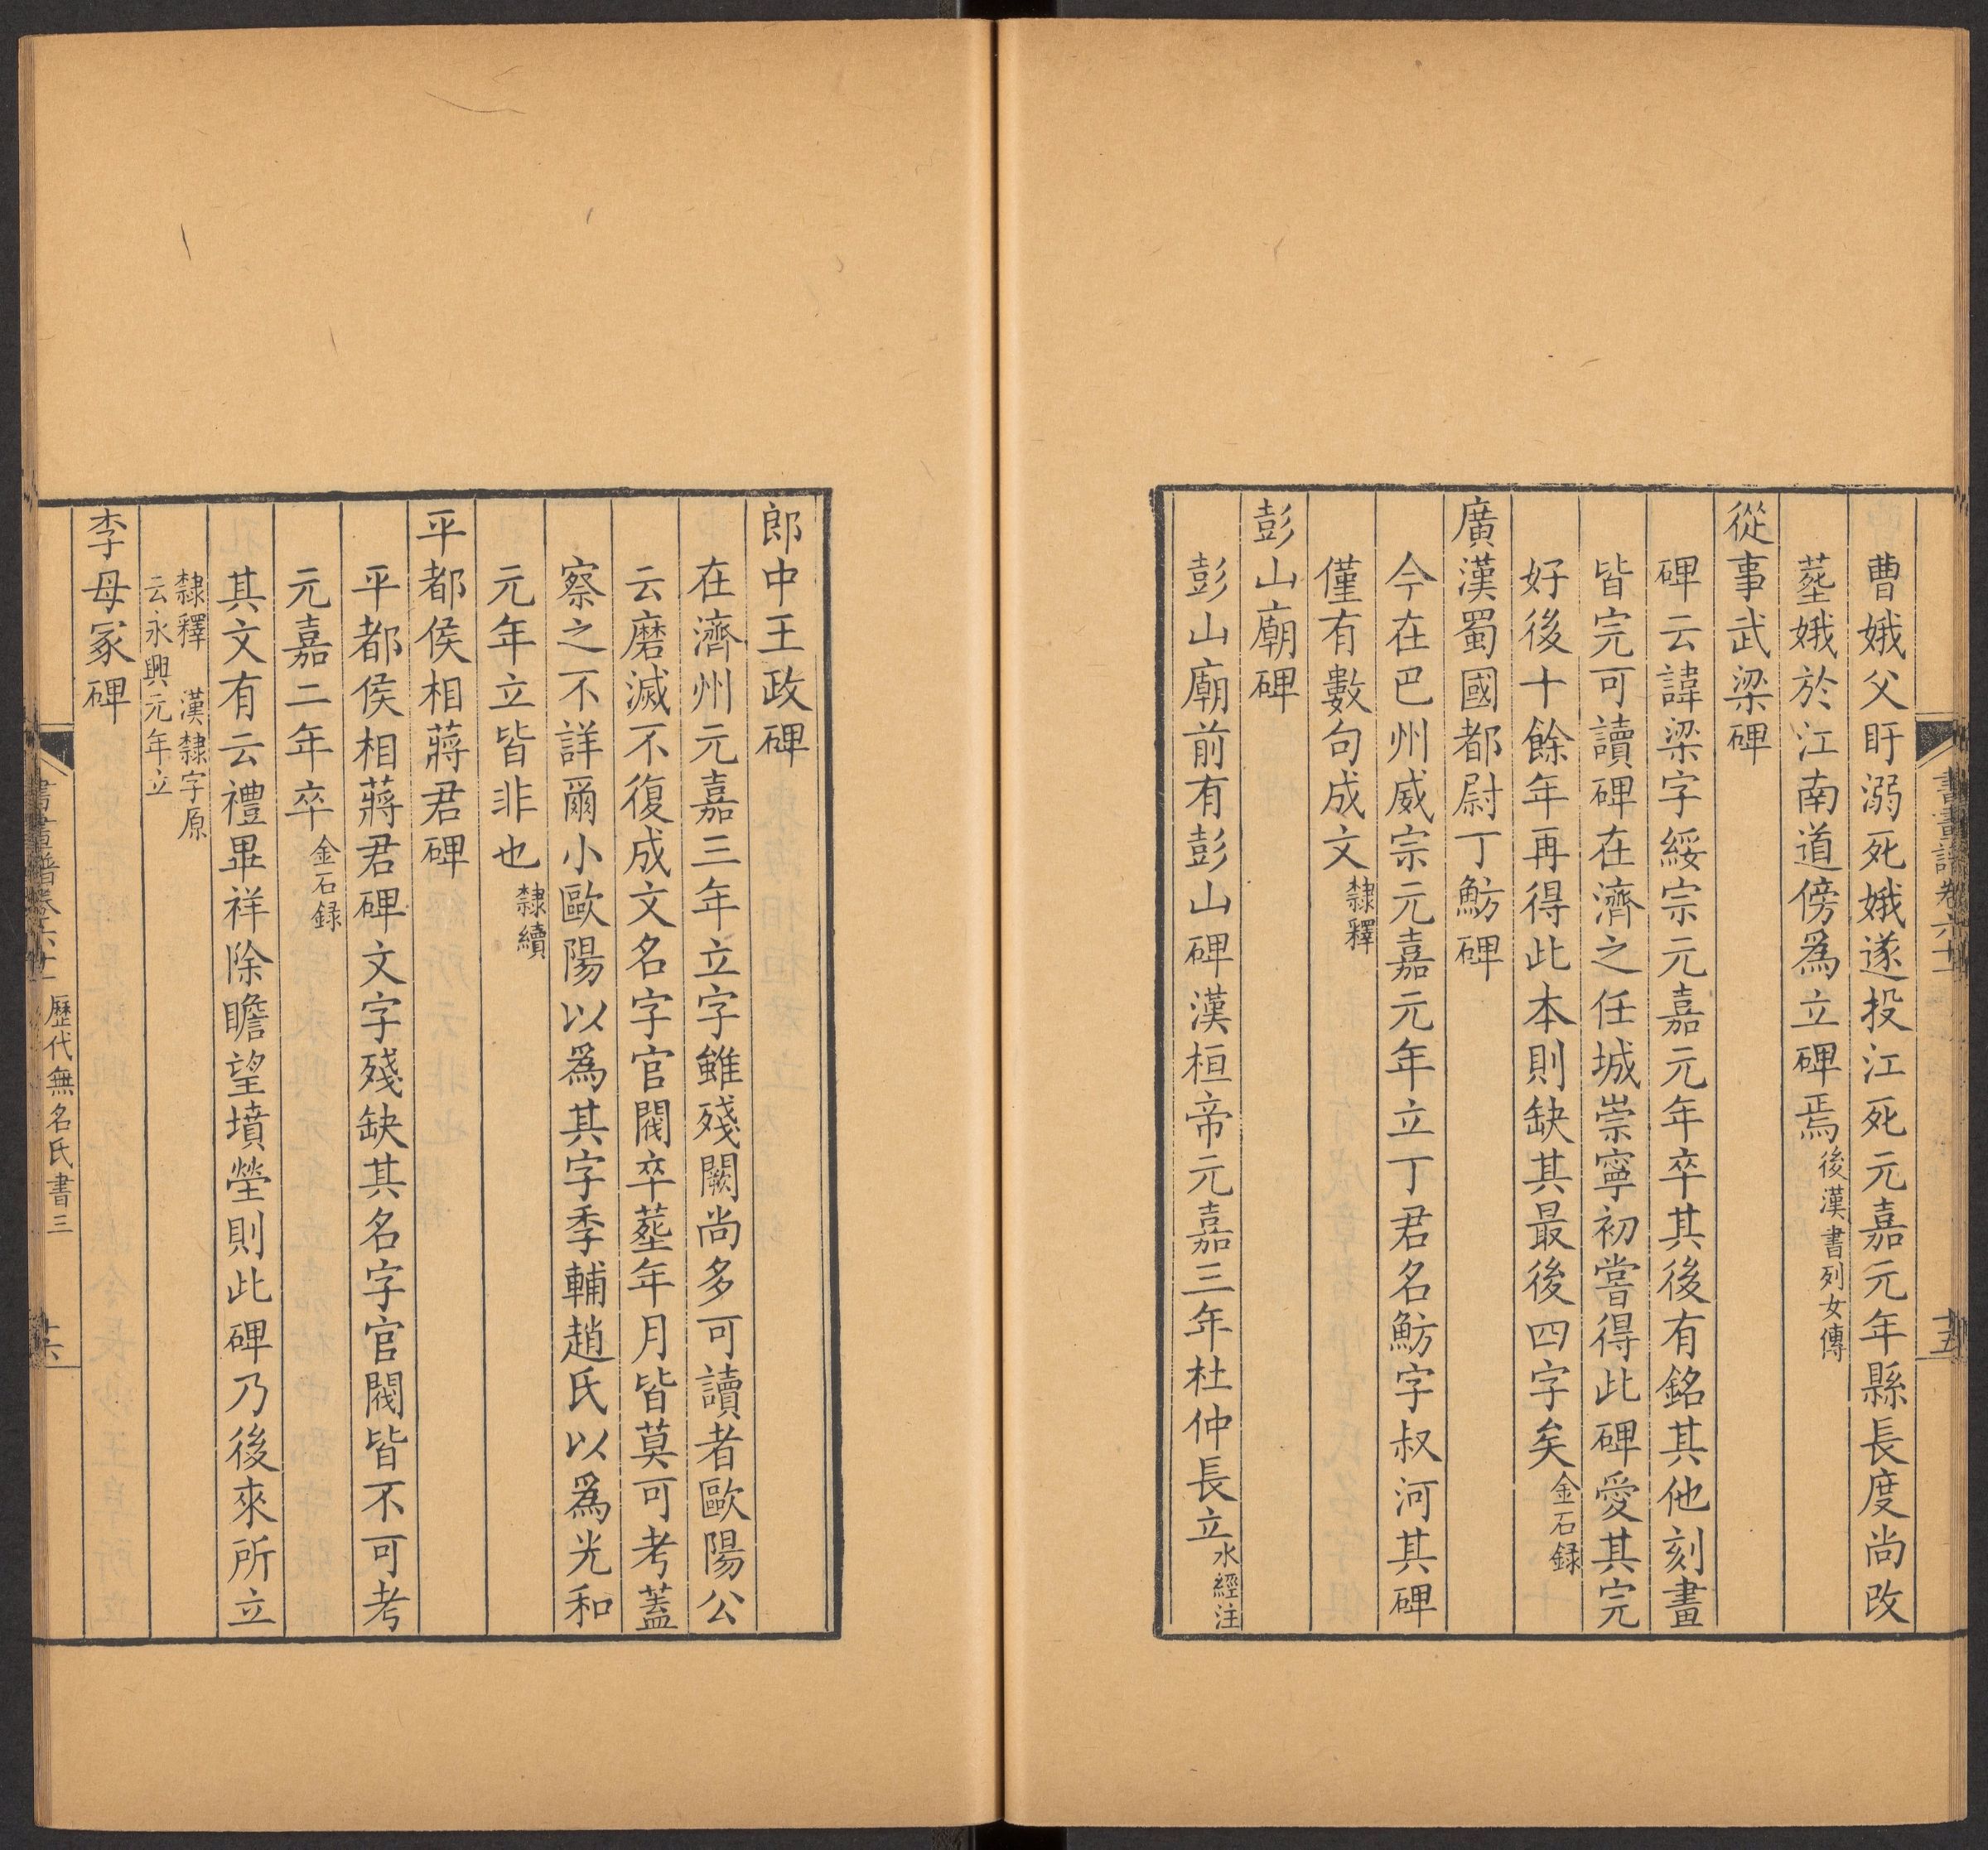 書畫譜卷六十一
十五
曹娥父盱溺死娥遂投江死元嘉元年縣長度尚改
塟娥於江南道傍爲立碑焉後漢書列女傳
從事武梁碑
碑云諱梁字綏宗元嘉元年卒其後有銘其他刻畫
皆完可讀碑在濟之任城崇寧初嘗得此碑愛其完
好後十餘年再得此本則缺其最後四字矣金石録
廣漢蜀國都尉丁魴碑
今在巴州威宗元嘉元年立丁君名魴字叔河其碑
僅有數句成文隸釋
彭山廟碑
彭山廟前有彭山碑漢桓帝元嘉三年杜仲長立水經注
郎中王政碑
在濟州元嘉三年立字雖殘闕尚多可讀者歐陽公
云磨滅不復成文名字官閥卒塟年月皆莫可考蓋
察之不詳爾小歐陽以爲其字季輔趙氏以爲光和
元年立皆非也隸續
平都侯相蔣君碑
平都侯相蔣君碑文字殘缺其名字官閥皆不可考
元嘉二年卒金石録
其文有云禮畢祥除瞻望墳塋則此碑乃後來所立
隸釋 漢隸字原
云永興元年立
李母冢碑
書畫譜卷六十一 歷代無名氏書三
十六